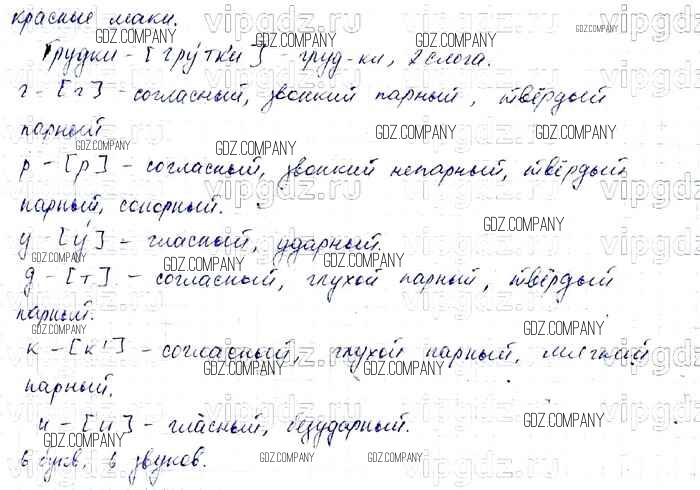 красные маки.
Грудки - [гру́тк'и] - груд-ки, 2 слога.
г - [г] - согласный, звонкий парный, твёрдый
парный
р - [р] - согласный, звонкий непарный, твёрдый
парный, сонорный.
у - [у́] - гласный, ударный.
д - [т] - согласный, глухой парный, твёрдый
парный.
к - [к'] - согласный, глухой парный, мягкий
парный.
и - [и] - гласный, безударный.
6 букв, 6 звуков.
GDZ.COMPANY
vipgdz.ru